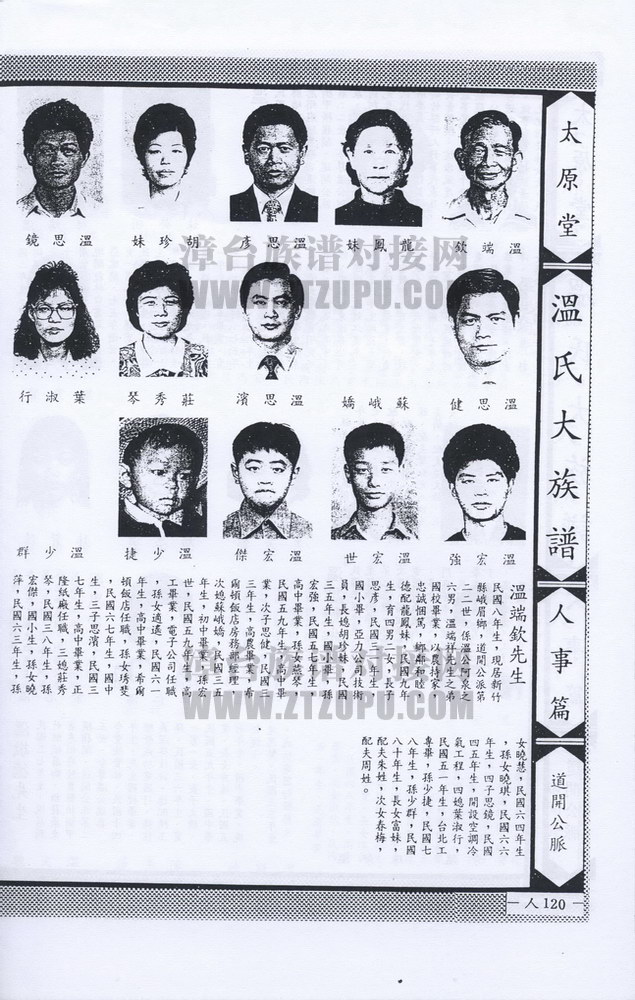 太原堂
溫氏大族譜
人事篇
道開公脈
人120
溫端欽
龍鳳妹
溫思彥
胡珍妹
溫思鏡
溫思健
蘇峨嬌
溫思濱
莊秀琴
葉淑行
溫宏強
溫宏世
溫宏傑
溫少捷
溫少群
溫端欽先生
民國八年生，現居新竹
縣峨眉鄉，道開公派第
二二世，係溫公阿泉之
六男，溫端祥先生之弟
國校畢業，以農持家，
忠誠悃篤，鄉鄰和睦，
德配龍鳳妹，民國九年
生，育四男二女，長子
思彥，民國三一年生，
國小畢，亞力公司技術
員，長媳胡珍妹，民國
三五年生，國小畢，孫
宏強，民國五七年生，
高中畢業，孫女
民國五九年生，高中畢
業，次子思健，民國三
三年生，高農畢業，希
爾頓飯店房務部經理，
次媳蘇峨嬌，民國三五
年生，初中畢業，孫宏
世，民國五九年生，高
工畢業，電子公司任職
，孫女遙遙，民國六一
年生，高中畢業，希爾
頓飯店任職，孫女琇斐
，民國六七年生，國中
生，三子思濱，民國三
七年生，高中畢業，正
隆紙廠任職，三媳莊秀
琴，民國三八年生，孫
宏傑，國小生，孫女曉
萍，民國六三年生，孫
女曉慧，民國六四年生
，孫女曉琪，民國六六
年生，四子思鏡，民國
四五年生，開設空調冷
氣工程，四媳葉淑行，
民國五一年生，台北工
專畢，孫少捷，民國七
八年生，孫少群，民國
八十年生，長女富妹，
配夫朱姓，次女春梅，
配夫周姓。
漳台族谱对接网
WWW.ZTZUPU.COM
漳台族谱对接网
WWW.ZTZUPU.COM